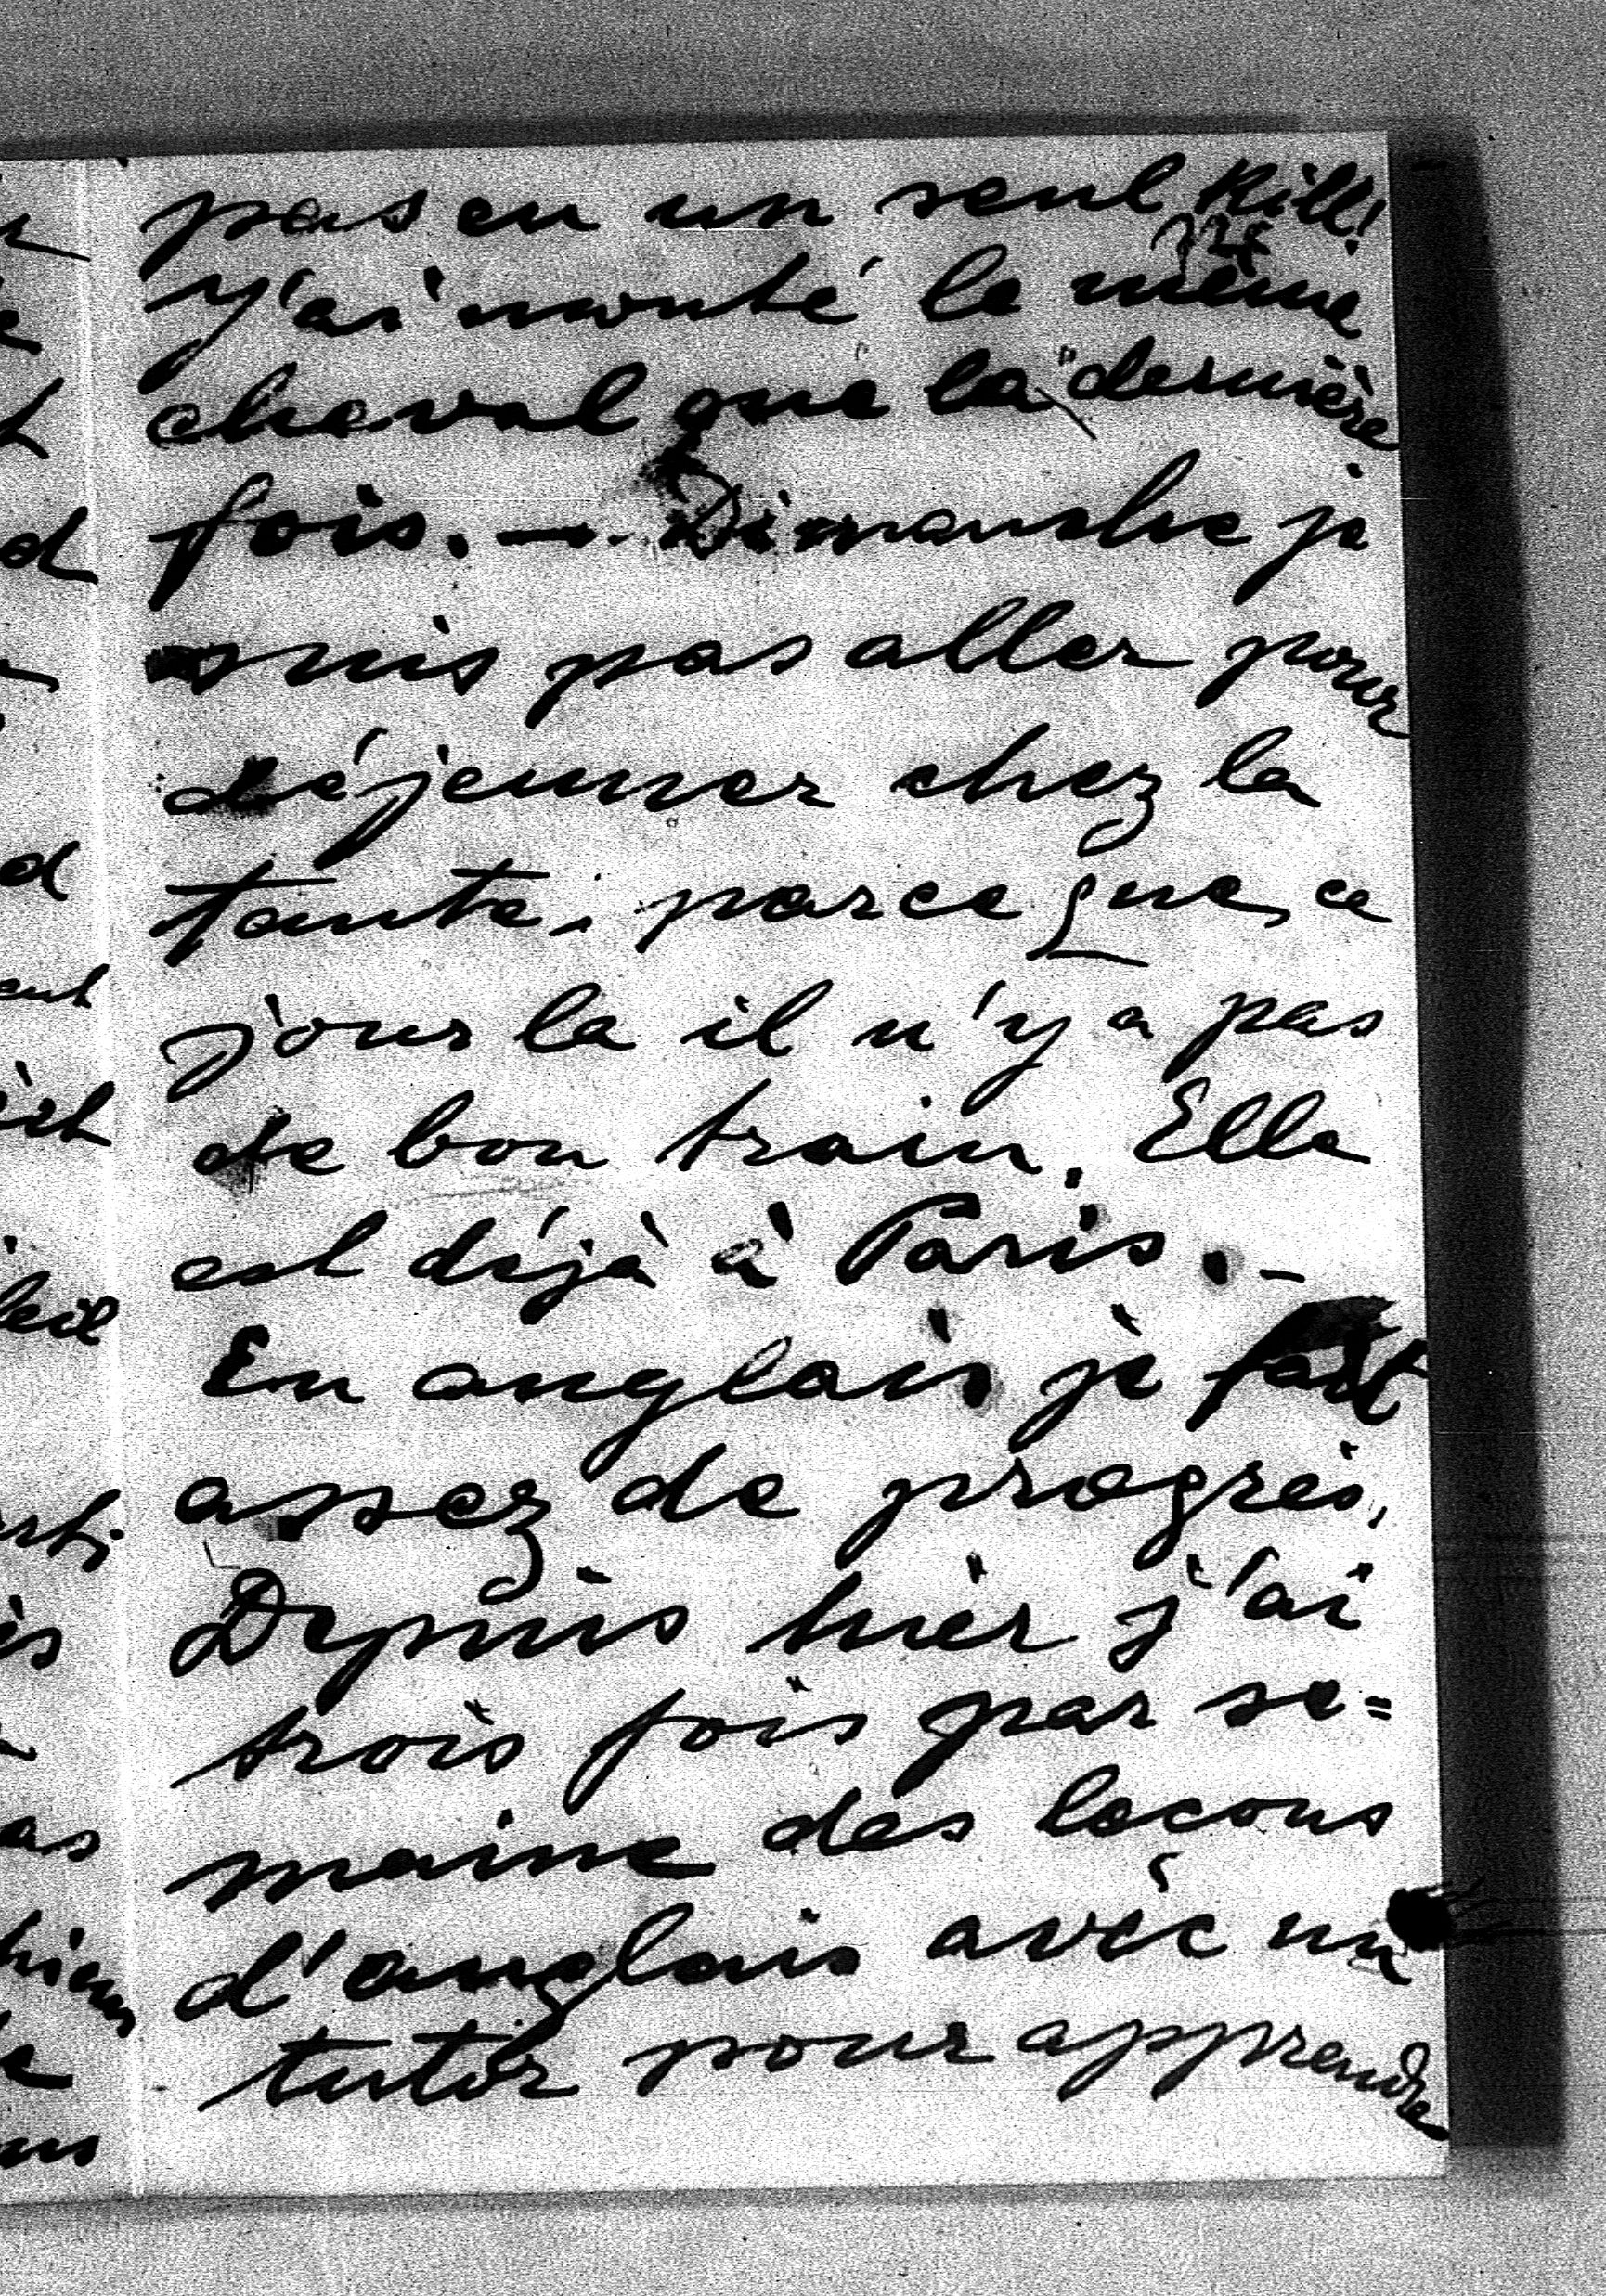 pas eu un seul Kill!
J'ai monté le même
cheval que la dernière
fois. — Dimanche je
suis pas aller pour
déjeuner chez la
tante, parce que, ce
jour la il n'y a pas
de bon train. Elle
est déjà à Paris. —
En anglais je fait
assez de progrès,
Depuis hièr j'ai
trois fois par se=
maine des lecons
d'anglais avec un
tutor pour apprendre